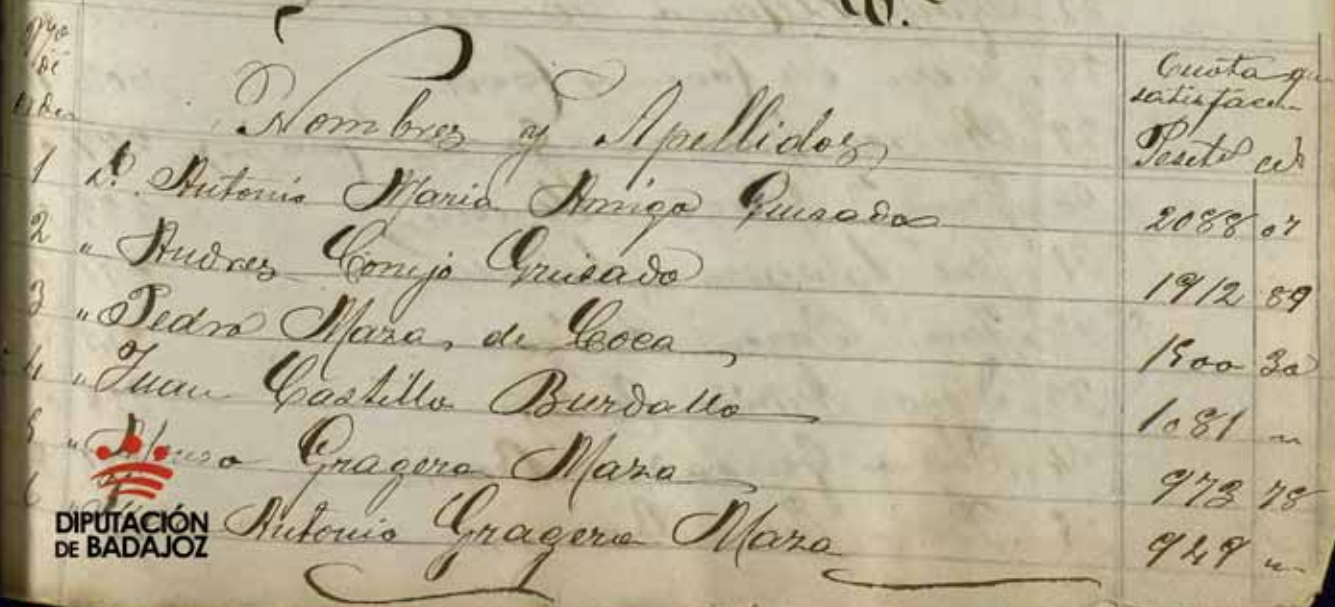 Nº
de
orden
Nombres y Apellidos
Cuota que
satisfacen
Pesetas cs
1 D. Antonio Maria Amigo Quisada 2088 07
2 " Andres Conejo Grisado 1912 89
3 " Pedro Maza de Coca 1500 30
4 " Juan Castillo Burdallo 1081 "
5 " Alonso Gragera Maza 973 78
6 Antonio Gragera Maza 949 "
DIPUTACIÓN
DE BADAJOZ